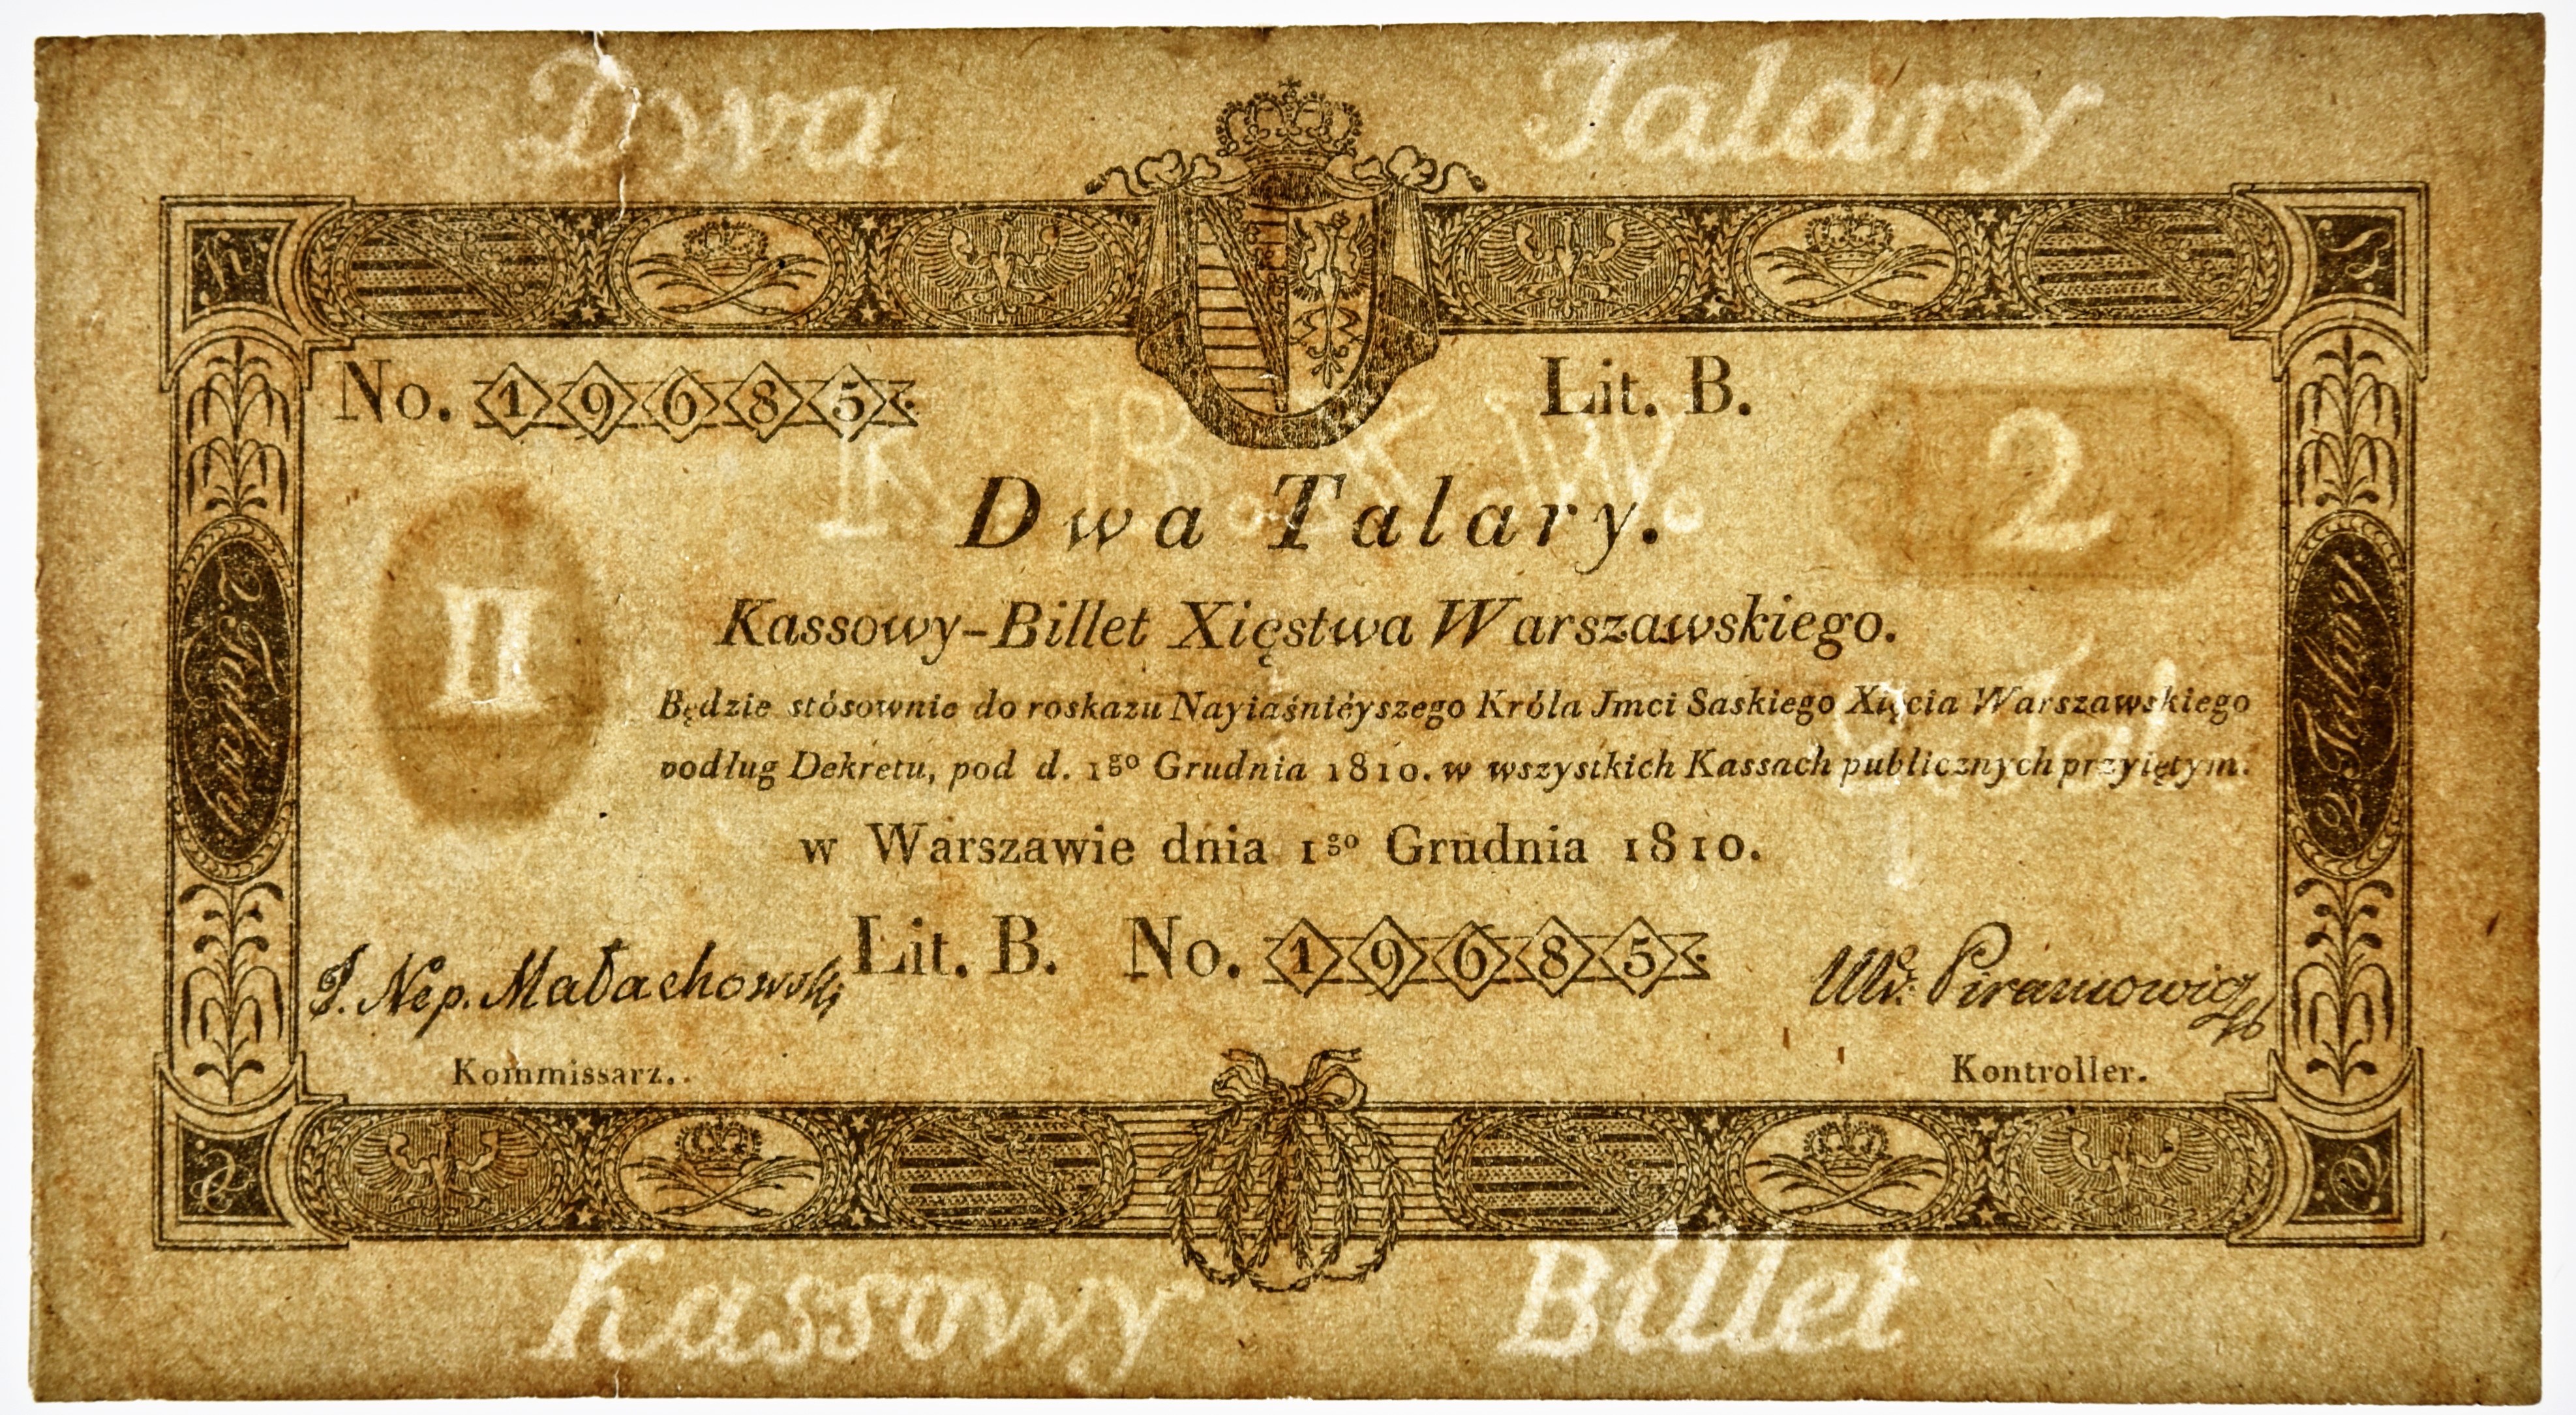 Dwa Talary
No. 19685.
Lit. B.
K. B. X. W.
2
Dwa Talary.
II
Kassowy-Billet Xięstwa Warszawskiego.
Będzie stósownie do roskazu Nayiaśniéyszego Króla Jmci Saskiego Xięcia Warszawskiego
podług Dekretu, pod d. 1go Grudnia 1810. w wszystkich Kassach publicznych przyiętym.
2 Tal
w Warszawie dnia 1go Grudnia 1810.
Lit. B. No. 19685.
J. Nep. Małachowski
Kommissarz..
Piramowicz
Kontroller.
2. Talary
2. Talary
Kassowy Billet